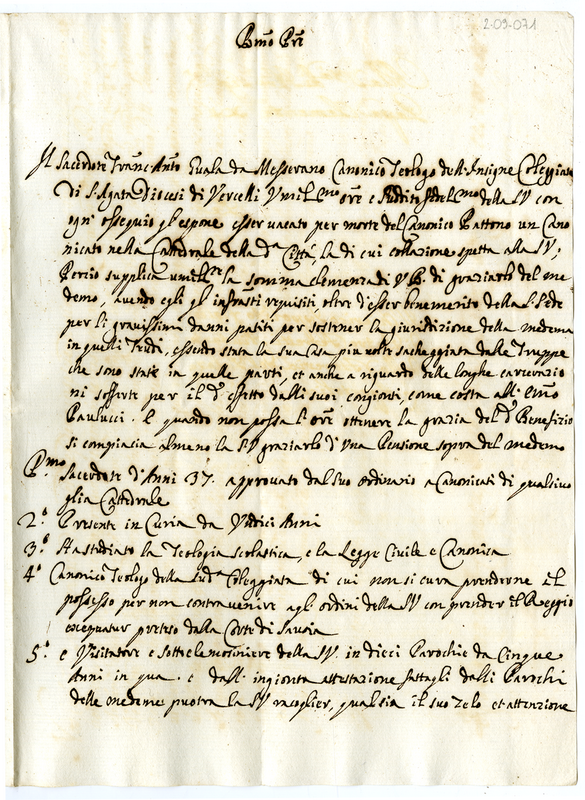 2-09-071
Bmo Pre
Il Sacerdote Franc. Anto Guala da Messerano Canonico Teologo dell'Insigne Colleggiata
di S. Agata Diocesi di Vercelli Umilmo ore e sudito fedelmo della SV con
ogn' ossequio gl'espone esser vacato per morte del Canonico Battono un Cano
nicato nella Cattedrale della da Città, la di cui collazione spetta alla SV;
Perciò supplica umilte la somma clemenza di V B. di graziarlo del me
demo, avendo egli gl' infrasti requisiti, oltre d'esser benemerito della S. Sede
per li gravissimi danni patiti per sostener la giurisdizione della medema
in quelli Feudi, essendo stata la sua Casa più volte sacheggiata dalle Truppe
che sono state in quelle parti, et anche a riguardo delle longhe carcerazio
ni sofferte per il do effetto dalli suoi congionti, come costa all' Emo
Paulucci. E quando non possa l'ore ottenere la grazia del do Benefizio
si compiacia almeno la SV graziarlo d'una Pensione sopra del medemo
Pmo Sacerdote d'Anni 37. approvato dal suo ordinario a Canonicati di qualsivo
glia Cattedrale
2.o Presente in Curia da Undici Anni
3.o Ha studiato la Teologia scolastica, e la Legge Civile e Canonica
4.o Canonico Teologo della suda Coleggiata di cui non si cura prenderne il
possesso per non contravenire agl' ordini della SV con prender il Reggio
exequatur preteso dalla Corte di Savoia
5.o e Visitatore e sottelemosiniere della SV. in dieci Parochie da Cinque
Anni in qua. e dall' ingionta attestazione fattagli dalli Parochi
delle medeme puotrà la SV racoglier, qual sia il suo zelo et attenzione